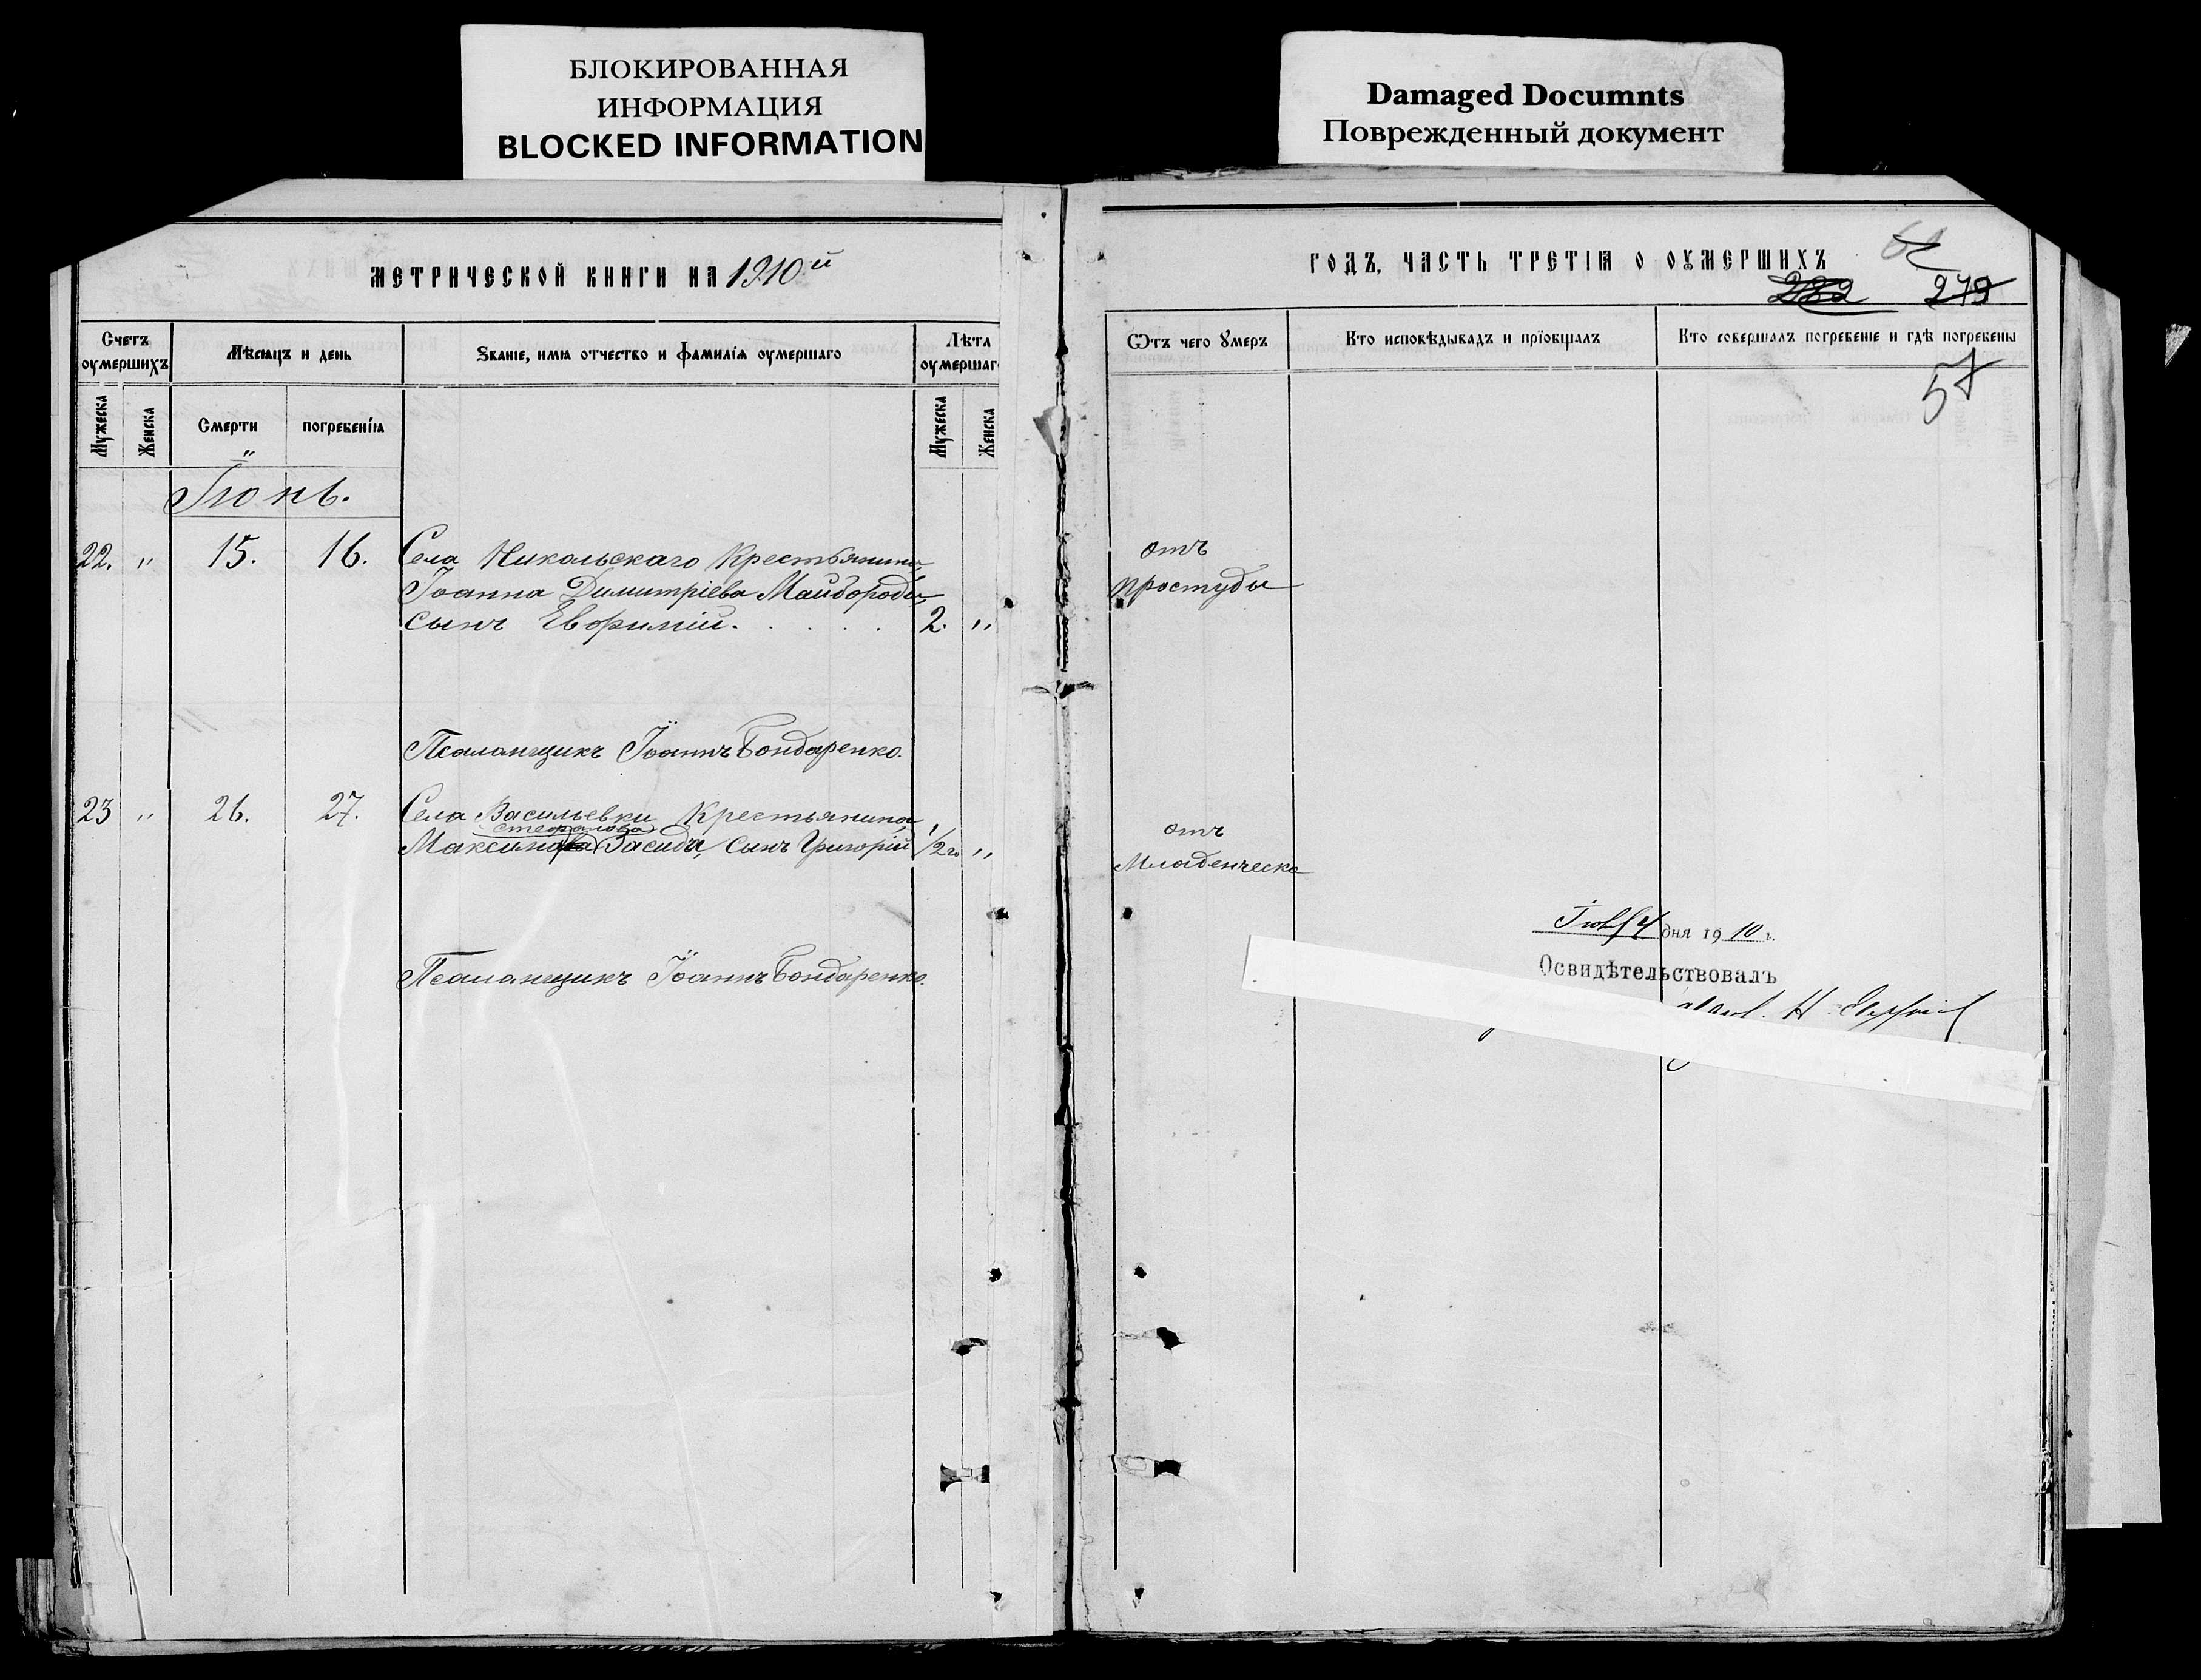 БЛОКИРОВАННАЯ
ИНФОРМАЦИЯ
BLOCKED INFORMATION
Damaged Documnts
Поврежденный документ
МЕТРИЧЕСКОЙ КНИГИ НА 1910й
Счетъ оумершихъ
Мѣсяцъ и день
Званіе, имя отчество и фамилія оумершаго
Лѣта оумершаго
Мужеска
Женска
Смерти
погребенія
Мужеска
Женска
Іюнь.
22. " 15. 16. Села Никольскаго Крестьянина
Іоанна Димитріева Майбороды,
сынъ Евфимій. 2. "
Псаломщикъ Іоаннъ Бондаренко.
23 " 26. 27. Села Васильевки Крестьянина
Максима Засида, сынъ Григорій 1/2 го "
Псаломщикъ Іоаннъ Бондаренко.
ГОДЪ, ЧАСТЬ ТРЕТІЯ О ОУМЕРШИХЪ
279
Ѿтъ чего ꙋмеръ
Кто исповѣдывалъ и прїобщалъ
Кто совершалъ погребеніе и гдѣ погребены
57
отъ
простуды
отъ
Младенческа
дня 1910 г.
Освидѣтельствовалъ